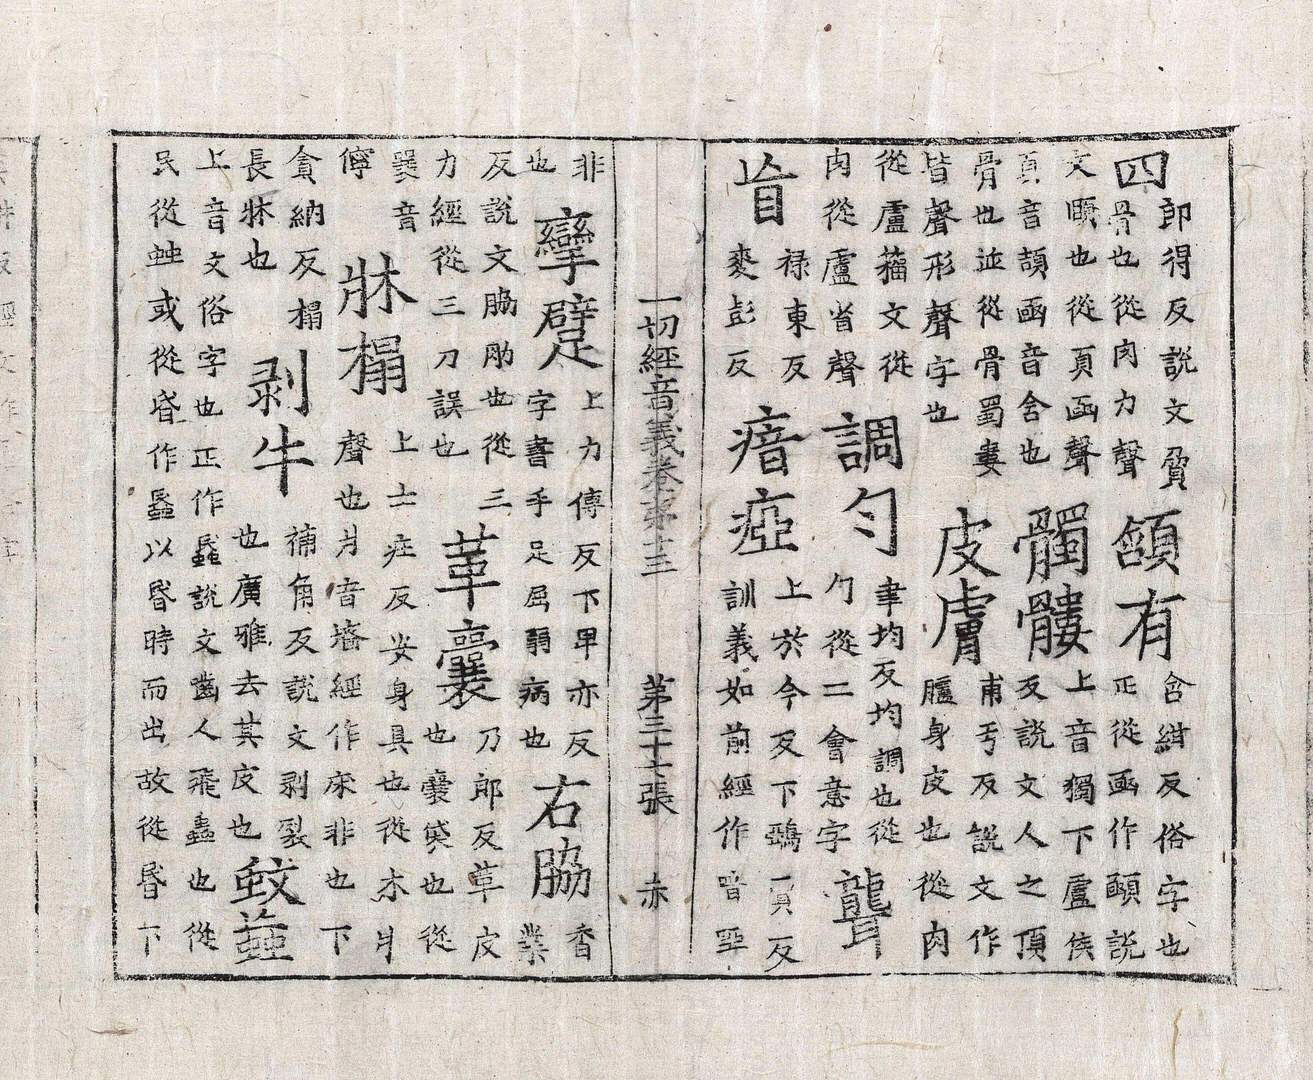 四
即得反說文脅
骨也從肉力聲
頷有
含紺反俗字也
正從函作顄說
文頤也從頁函聲
頁音頡函音含也
髑髏
上音獨下盧侯
反說文人之頂
骨也並從骨蜀婁
皆聲形聲字也
皮膚
甫于反說文作
臚身皮也從肉
從盧籒文從
肉從盧省聲
調勻
聿均反均調也從
勹從二會意字
聾
盲
祿東反
麥彭反
瘖瘂
上於今反下鵶賈反
訓義如前經作喑啞
一切經音義卷第十三 第三十七張 赤
非
也
攣躄
上力傳反下卑亦反
字書手足屈弱病也
右脇
香
業
反說文脇肋也從三
力經從三刀誤也
革囊
乃郎反革皮
也囊袋也從
音
儜
牀榻
上士莊反安身具也從木爿
聲也爿音墻經作床非也下
貪納反榻
長牀也
剝牛
補角反說文剝裂
也廣雅去其皮也
蚊䖟
上音文俗字也正作蟁說文齧人飛蟲也從
民從䖵或從昏作蟁以昏時而出故從昏下